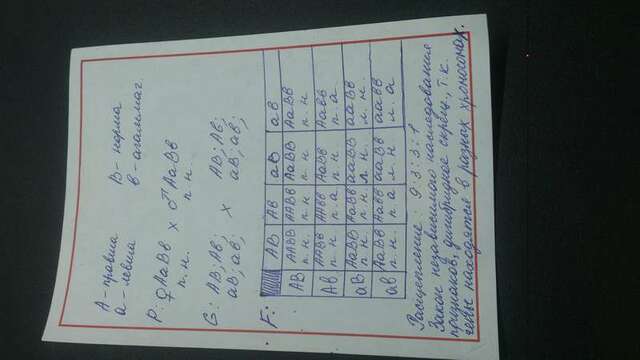 А - правша В - норма
а - левша в - агаммаг.
Р: ♀АаВв х ♂АаВв
п.н. п.н.
G: АВ; Ав; х АВ; Ав;
аВ; ав; аВ; ав;
F:
АВ Ав аВ ав
АВ ААВВ ААВв АаВВ АаВв
п.н. п.н. п.н. п.н.
Ав ААВв ААвв АаВв Аавв
п.н. п.а п.н. п.а
аВ АаВВ АаВв ааВВ ааВв
п.н. п.н. л.н. л.н.
ав АаВв Аавв ааВв аавв
п.н. п.а л.н л.а
Расщепление: 9:3:3:1
Закон независимого наследования
признаков, дигибридное скрещ. т.к.
гены находятся в разных хромосомах.